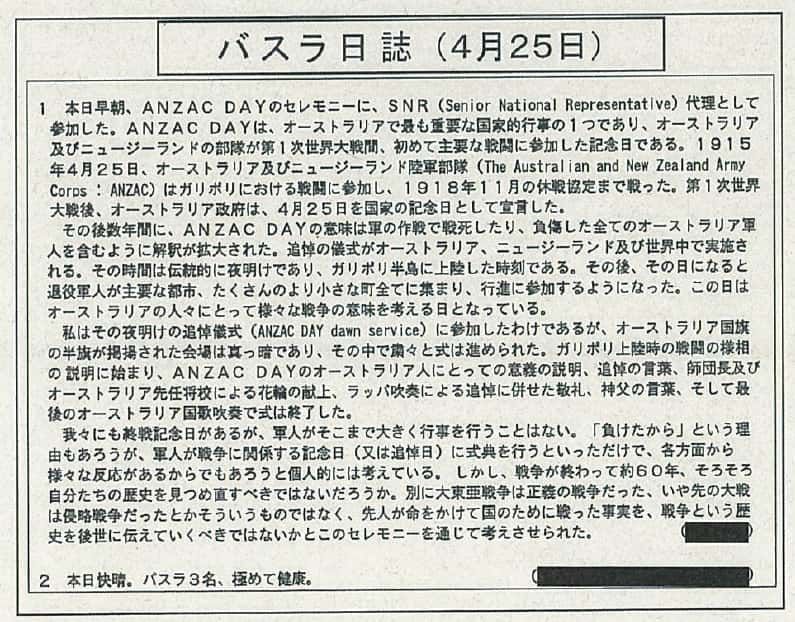 バスラ日誌（4月25日）
1　本日早朝、ANZAC DAYのセレモニーに、SNR（Senior National Representative）代理として
参加した。ANZAC DAYは、オーストラリアで最も重要な国家的行事の1つであり、オーストラリア
及びニュージーランドの部隊が第1次世界大戦間、初めて主要な戦闘に参加した記念日である。1915
年4月25日、オーストラリア及びニュージーランド陸軍部隊（The Australian and New Zealand Army
Corps：ANZAC）はガリポリにおける戦闘に参加し、1918年11月の休戦協定まで戦った。第1次世界
大戦後、オーストラリア政府は、4月25日を国家の記念日として宣言した。
　その後数年間に、ANZAC DAYの意味は軍の作戦で戦死したり、負傷した全てのオーストラリア軍
人を含むように解釈が拡大された。追悼の儀式がオーストラリア、ニュージーランド及び世界中で実施さ
れる。その時間は伝統的に夜明けであり、ガリポリ半島に上陸した時刻である。その後、その日になると
退役軍人が主要な都市、たくさんのより小さな町全てに集まり、行進に参加するようになった。この日は
オーストラリアの人々にとって様々な戦争の意味を考える日となっている。
　私はその夜明けの追悼儀式（ANZAC DAY dawn service）に参加したわけであるが、オーストラリア国旗
の半旗が掲揚された会場は真っ暗であり、その中で粛々と式は進められた。ガリポリ上陸時の戦闘の様相
の説明に始まり、ANZAC DAYのオーストラリア人にとっての意義の説明、追悼の言葉、師団長及び
オーストラリア先任将校による花輪の献上、ラッパ吹奏による追悼に併せた敬礼、神父の言葉、そして最
後のオーストラリア国歌吹奏で式は終了した。
　我々にも終戦記念日があるが、軍人がそこまで大きく行事を行うことはない。「負けたから」という理
由もあろうが、軍人が戦争に関係する記念日（又は追悼日）に式典を行うといっただけで、各方面から
様々な反応があるからでもあろうと個人的には考えている。しかし、戦争が終わって約60年、そろそろ
自分たちの歴史を見つめ直すべきではないだろうか。別に大東亜戦争は正義の戦争だった、いや先の大戦
は侵略戦争だったとかそういうものではなく、先人が命をかけて国のために戦った事実を、戦争という歴
史を後世に伝えていくべきではないかとこのセレモニーを通じて考えさせられた。
2　本日快晴。バスラ3名、極めて健康。